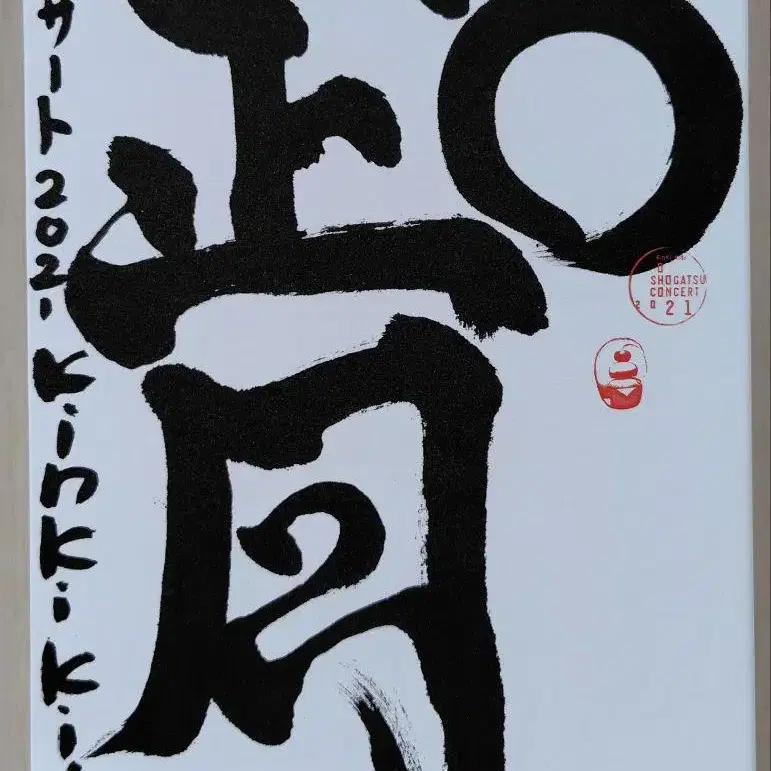 O
正月
サート2021 KinKi Ki
O
SHOGATSU
CONCERT
2021